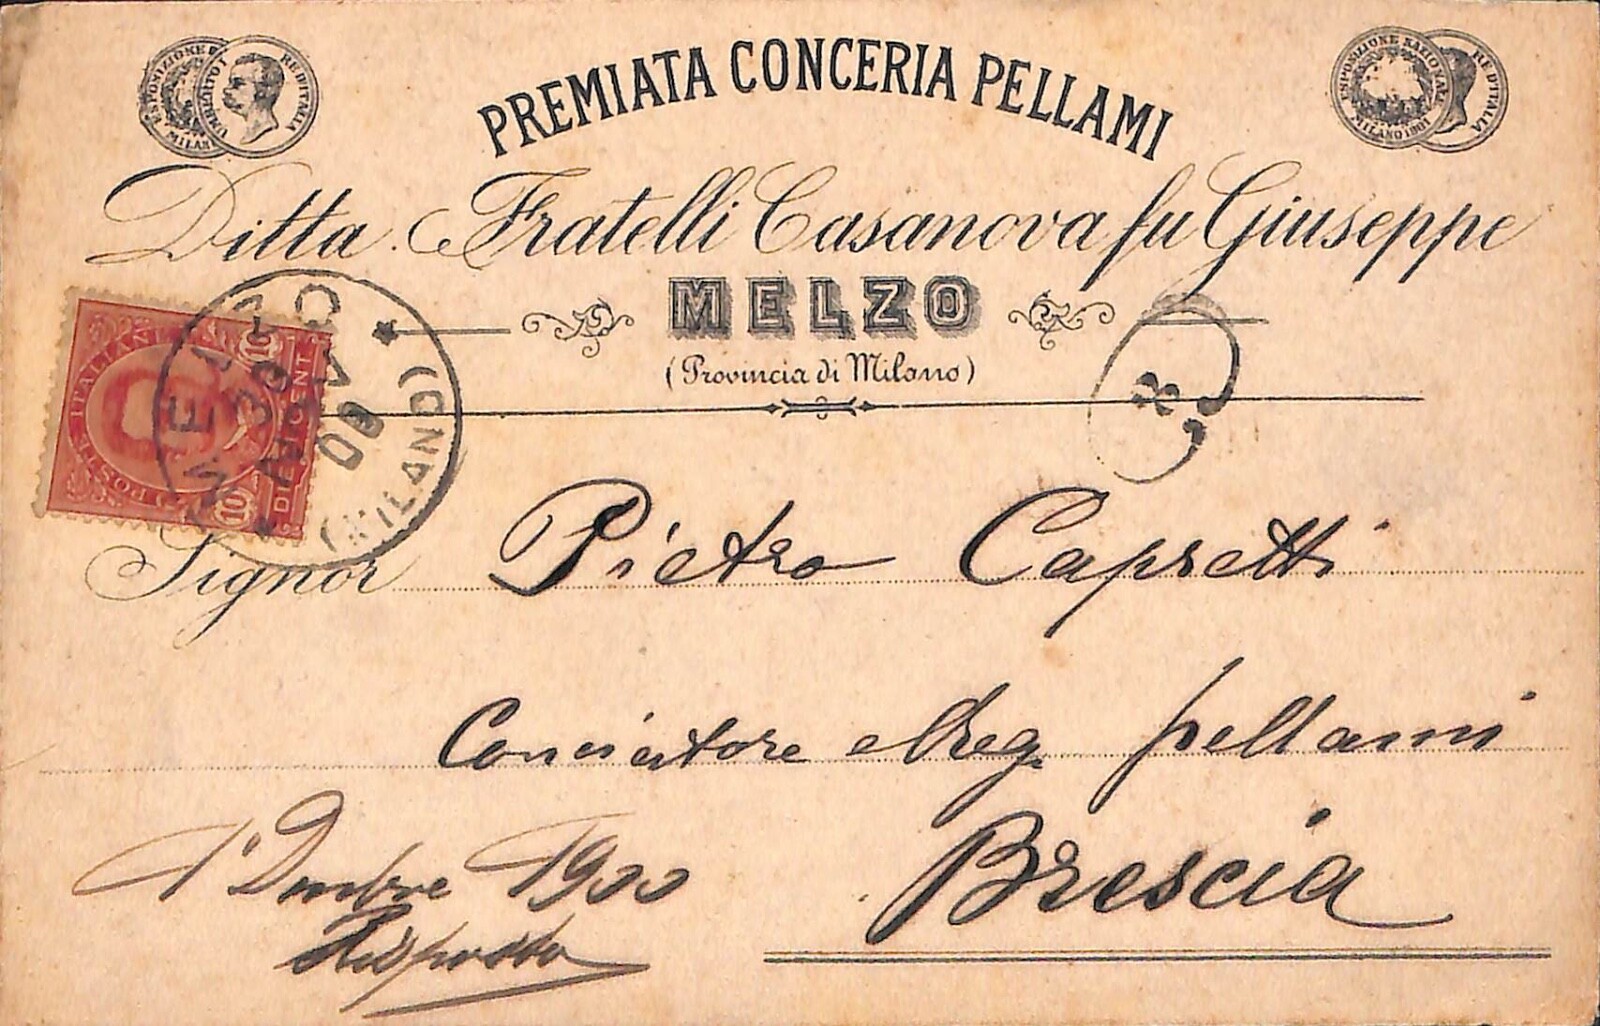 ESPOSIZIONE
MILANO
UMBERTO I RE D'ITALIA
ESPOSIZIONE NAZIONALE
MILANO 1881
RE D'ITALIA
PREMIATA CONCERIA PELLAMI
Ditta Fratelli Casanova fu Giuseppe
MELZO
(Provincia di Milano)
POSTE ITALIANE
10
10
CENT. DIECI
MELZO
30
NOV
00
(MILANO)
B
Signor Pietro Capretti
Conciatore e Neg. pellami
Brescia
1° Dembre 1900
Risposto